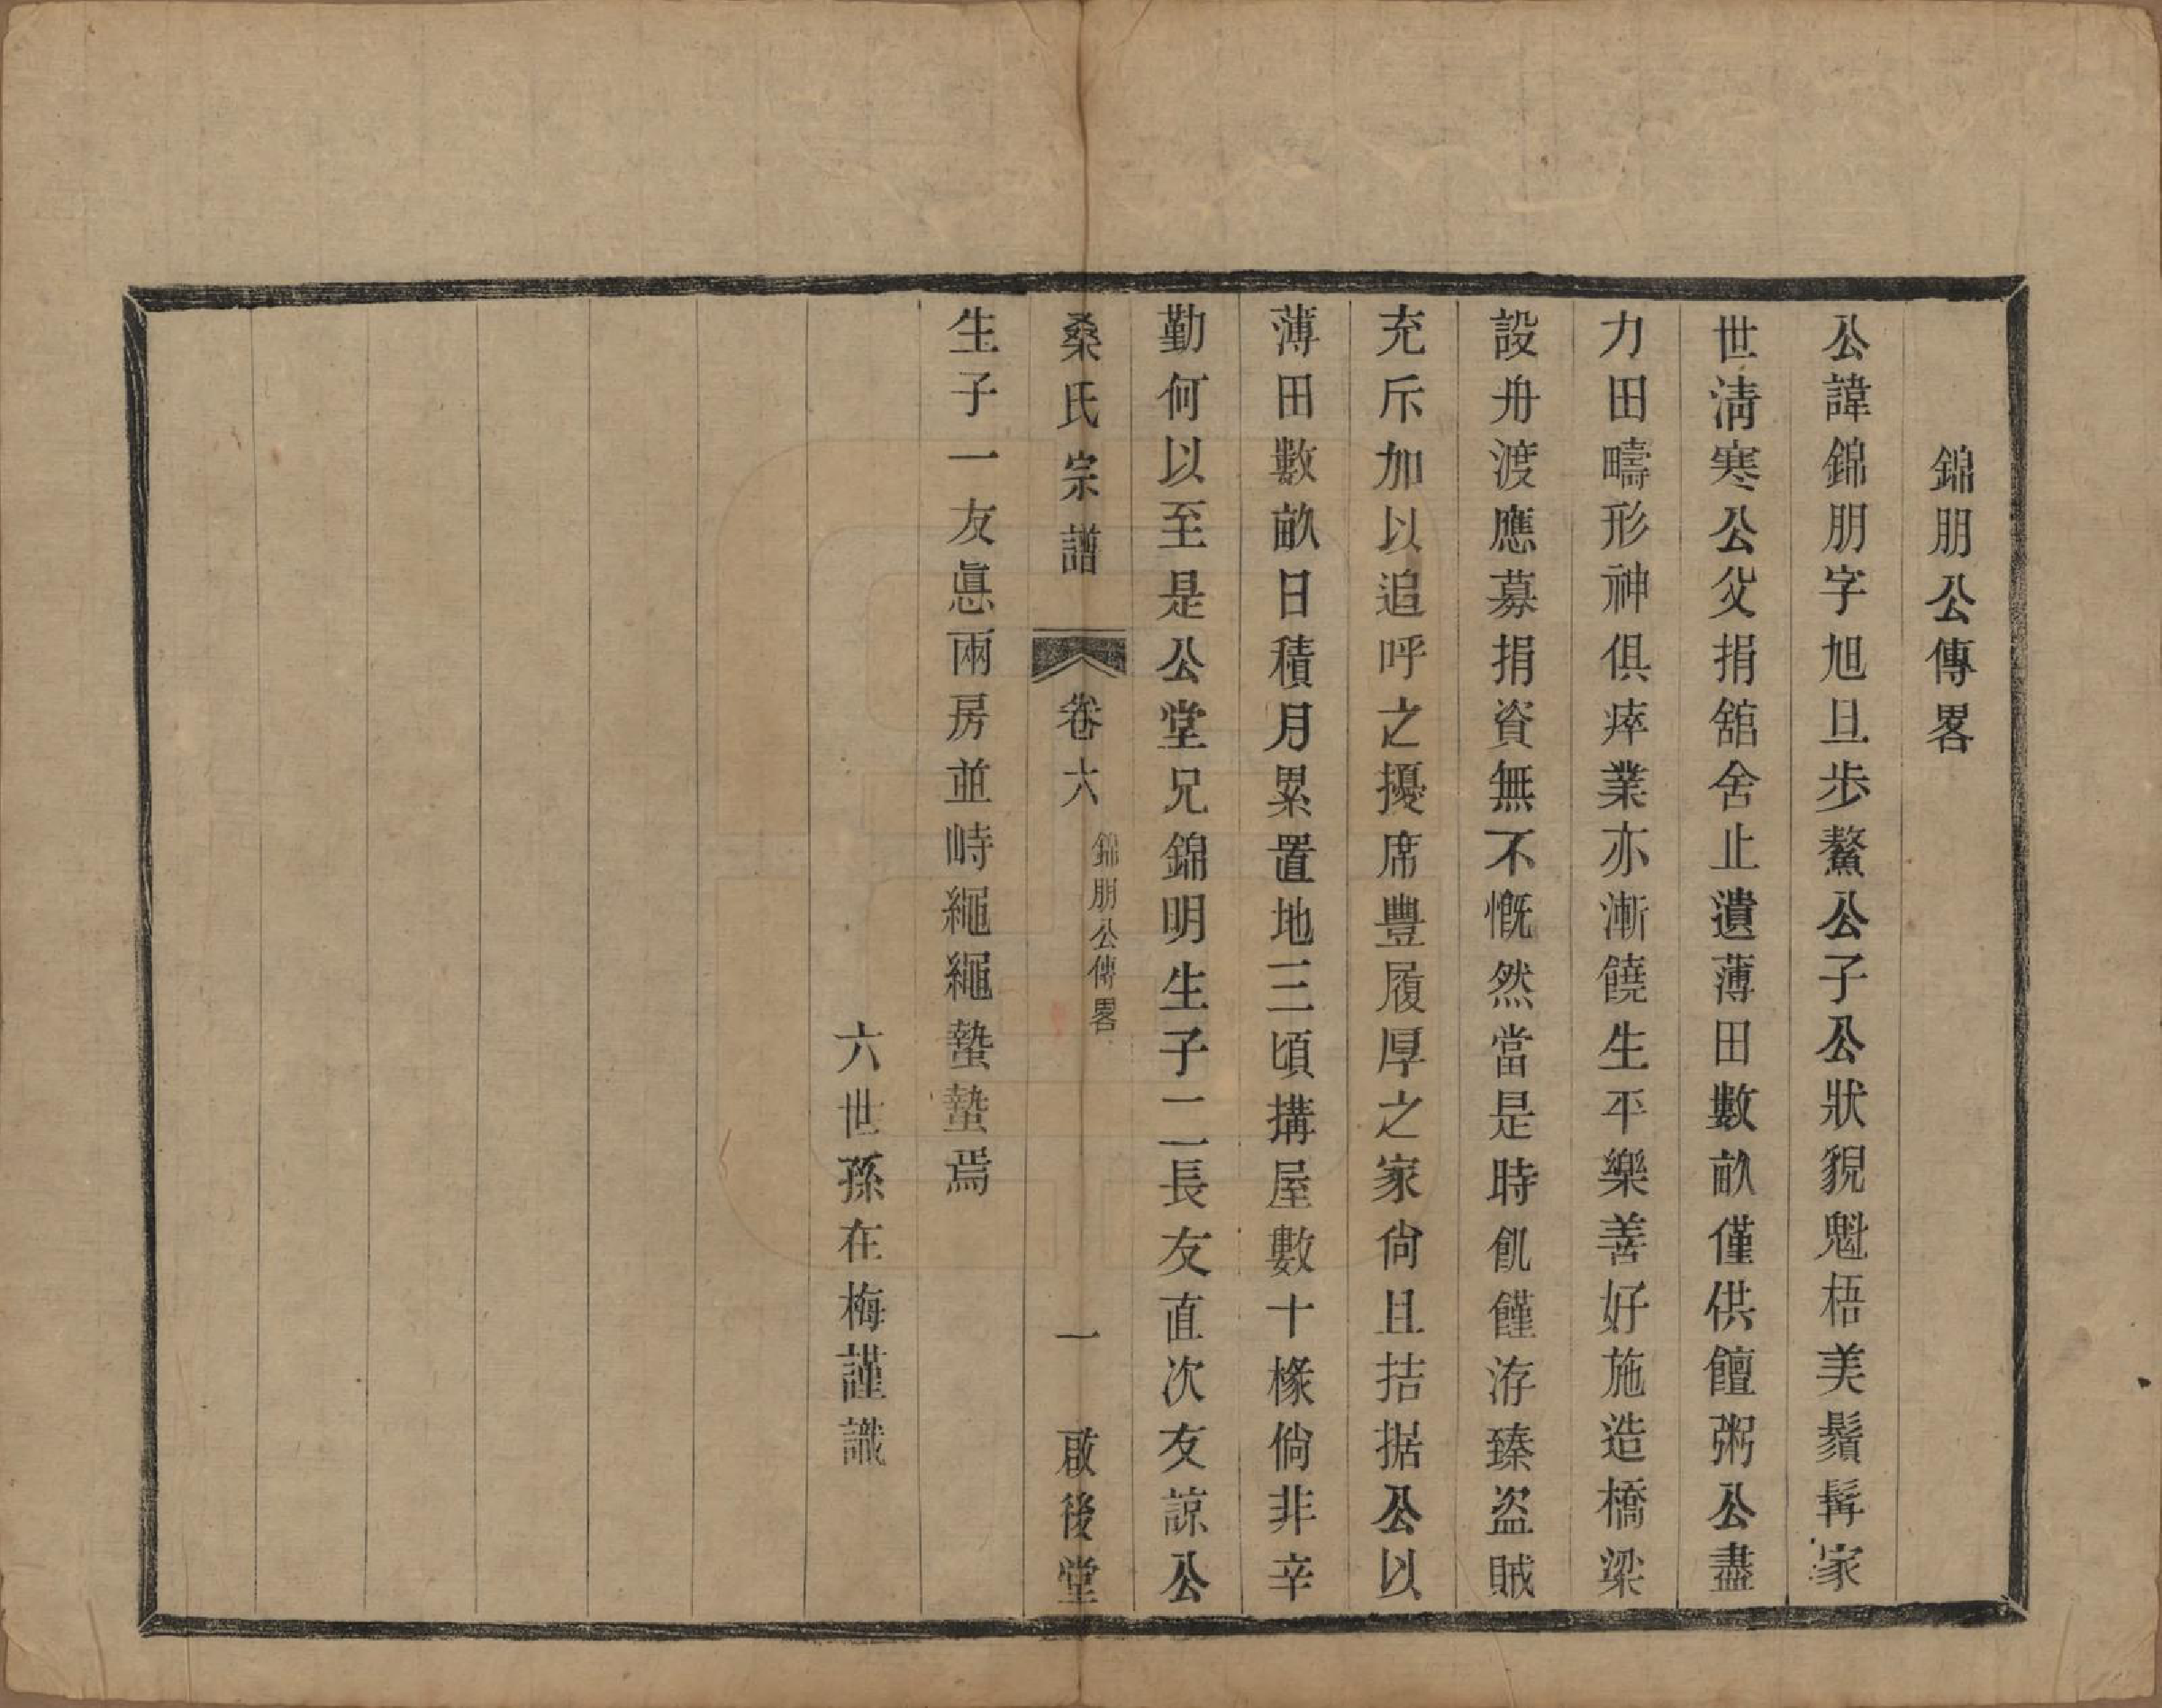 錦朋公傳畧
公諱錦朋字旭旦步鰲公子公狀貌魁梧美鬚髯家
世淸寒公父捐舘舍止遺薄田數畝僅供饘粥公盡
力田疇形神俱瘁業亦漸饒生平樂善好施造橋梁
設舟渡應募捐資無不慨然當是時飢饉洊臻盜賊
充斥加以追呼之擾席豐履厚之家尙且拮据公以
薄田數畝日積月累置地三頃搆屋數十椽倘非辛
勤何以至是公堂兄錦明生子二長友直次友諒公
桑氏宗譜 卷六 錦朋公傳畧 一 啟後堂
生子一友悳兩房並峙繩繩蟄蟄焉
六世孫在梅謹識